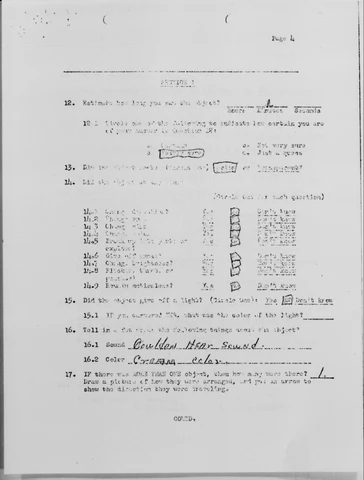 Page 4
12. Estimate how long you saw the object?
Hours Minutes Seconds
12.1 Circle one of the following to indicate how certain you are
of your answer to Question 12:
a. Certain c. Not very sure
b. Fairly sure d. Just a guess
13. Did the object
14. Did the object at any time:
(Circle One for each question)
14.1 Change direction? Yes No Don't know
14.2 Yes No Don't know
14.3 Yes No Don't know
14.4 Yes No Don't know
14.5 Break up into parts or
explode? Yes No Don't know
14.6 Give off smoke? Yes No Don't know
14.7 Change brightness? Yes No Don't know
14.8 Yes No Don't know
14.9 Remain motionless? Yes No Don't know
15. Did the object give off a light? (Circle One): Yes No Don't know
15.1 If you answered YES, what was the color of the light?
16. Tell in a few words the following things about the object?
16.1 Sound Couldn Hear Sound
16.2 Color Cream color
17. IF there was MORE THAN ONE object, then how many were there? 1.
Draw a picture of how they were arranged, and put an arrow to
show the direction they were traveling.
CONTD.